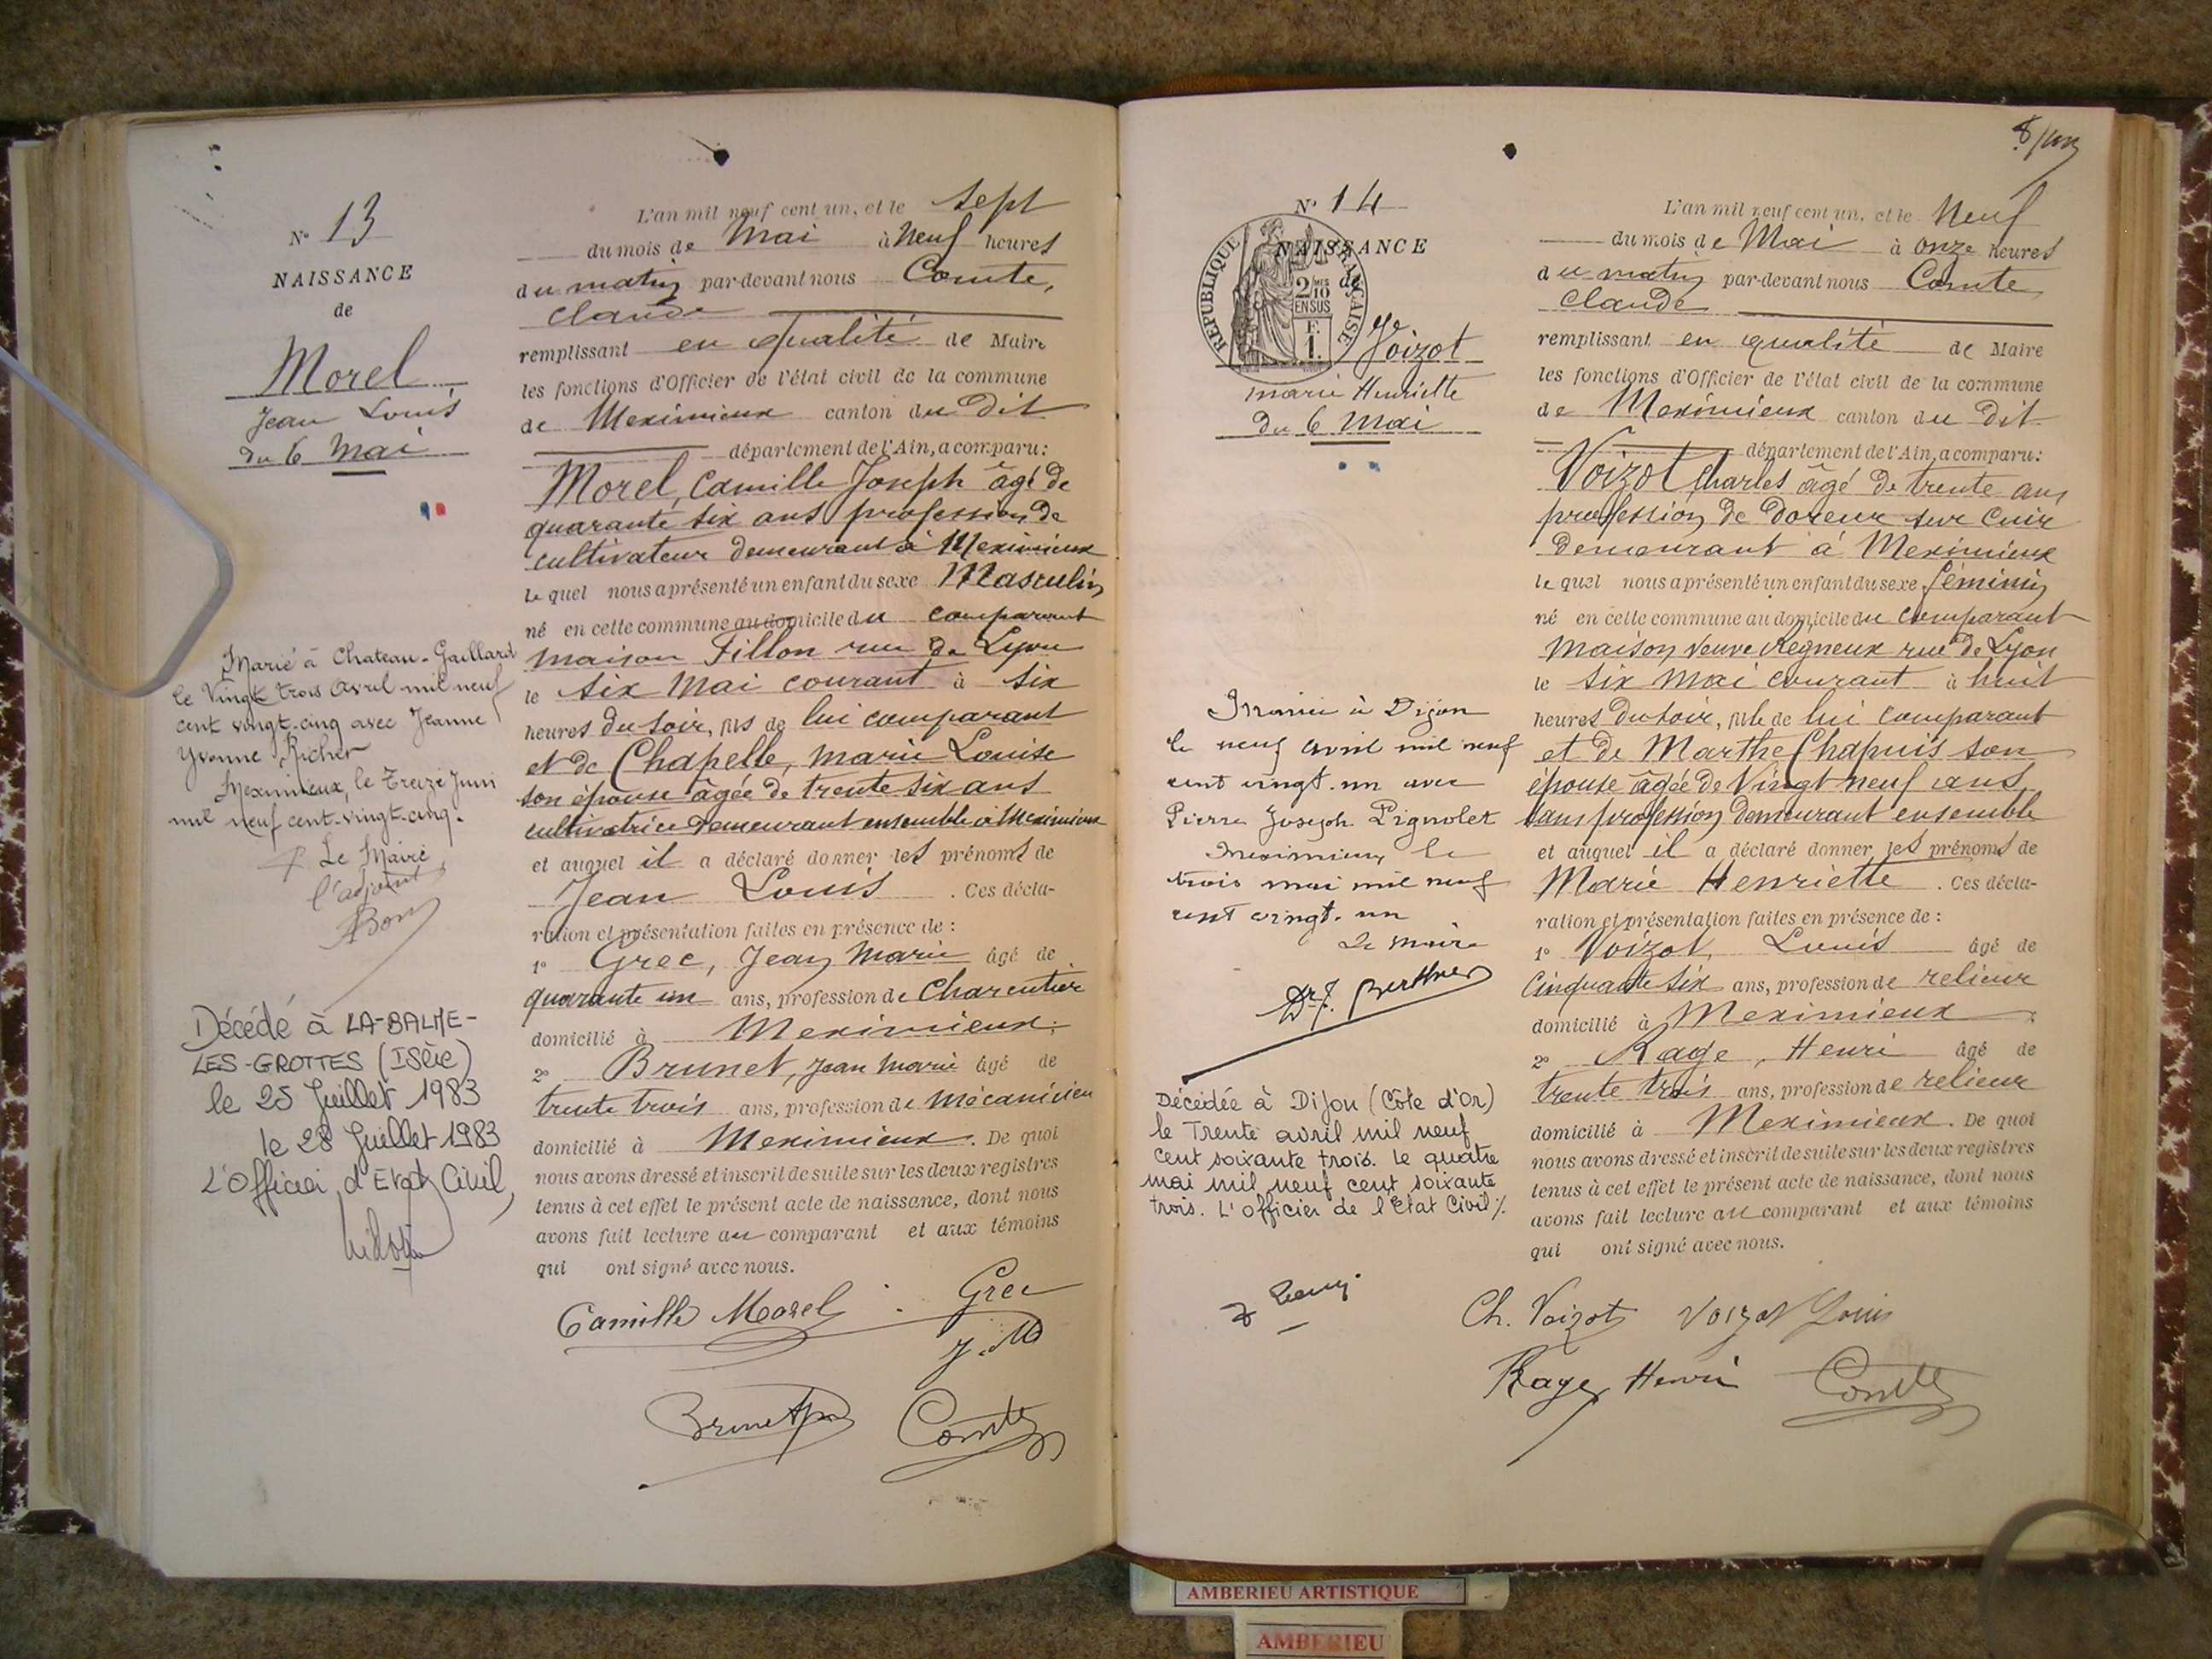 N° 13
NAISSANCE
de
Morel
Jean Louis
du 6 Mai
Marié à Chateau-Gaillard
le Vingt trois avril mil neuf
cent vingt-cinq avec Jeanne
Yvonne Richer
Meximieux, le Treize Juin
mil neuf cent-vingt-cinq.
Le Maire
l'adjoint
Décédé à LA-BALME-
LES-GROTTES (ISère)
le 25 Juillet 1983
le 28 Juillet 1983
L'Officier d'Etat Civil,
L'an mil neuf cent un, et le sept
du mois de Mai à Neuf heures
du matin par-devant nous Comte,
Claude
remplissant en qualité de Maire
les fonctions d'Officier de l'état civil de la commune
de Meximieux canton du Dit
département de l'Ain, a comparu:
Morel, Camille Joseph âgé de
quarante six ans profession de
cultivateur demeurant à Meximieux
le quel nous a présenté un enfant du sexe Masculin
né en cette commune au domicile du comparant
maison Fillon rue de Lyon
le six Mai courant à six
heures du soir, fils de lui comparant
et de Chapelle, marie Louise
son épouse âgée de trente six ans
cultivatrice demeurant ensemble à Meximieux
et auquel il a déclaré donner les prénoms de
Jean Louis. Ces décla-
ration et présentation faites en présence de :
1° Grec, Jean Marie âgé de
quarante un ans, profession de Charcutier
domicilié à Meximieux;
2° Brunet, Jean Marie âgé de
trente trois ans, profession de Mécanicien
domicilié à Meximieux. De quoi
nous avons dressé et inscrit de suite sur les deux registres
tenus à cet effet le présent acte de naissance, dont nous
avons fait lecture au comparant et aux témoins
qui ont signé avec nous.
Camille Morel Grec
J. M
Brunet Comte
8/
N° 14
NAISSANCE
de
REPUBLIQUE FRANÇAISE
2/10 MES
EN SUS
F.
1.
Voizot
marie Henriette
du 6 Mai
Mariée à Dijon
le neuf avril mil neuf
cent vingt-un avec
Pierre Joseph Pignolet
Meximieux le
trois mai mil neuf
cent vingt-un
Le maire
Dr J. Berthier
Décédée à Dijon (Côte d'Or)
le Trente avril mil neuf
cent soixante trois. Le quatre
mai mil neuf cent soixante
trois. L'officier de l'Etat Civil %
L'an mil neuf cent un, et le Neuf
du mois de Mai à onze heures
du matin par-devant nous Comte
Claude
remplissant en qualité de Maire
les fonctions d'Officier de l'état civil de la commune
de Meximieux canton du Dit
département de l'Ain, a comparu:
Voizot Charles âgé de trente ans
profession de Doreur sur cuir
demeurant à Meximieux
le quel nous a présenté un enfant du sexe féminin
né en cette commune au domicile du comparant
Maison veuve Regneux rue de Lyon
le six Mai courant à huit
heures du soir, fille de lui comparant
et de Marthe Chapuis son
épouse âgée de Vingt neuf ans
sans profession demeurant ensemble
et auquel il a déclaré donner les prénoms de
Marie Henriette. Ces décla-
ration et présentation faites en présence de :
1° Voizot, Louis âgé de
Cinquante six ans, profession de relieur
domicilié à Meximieux
2° Rage, Henri âgé de
trente trois ans, profession de relieur
domicilié à Meximieux. De quoi
nous avons dressé et inscrit de suite sur les deux registres
tenus à cet effet le présent acte de naissance, dont nous
avons fait lecture au comparant et aux témoins
qui ont signé avec nous.
Ch. Voizot Voizot Louis
Rage Henri Comte
AMBERIEU ARTISTIQUE
AMBERIEU